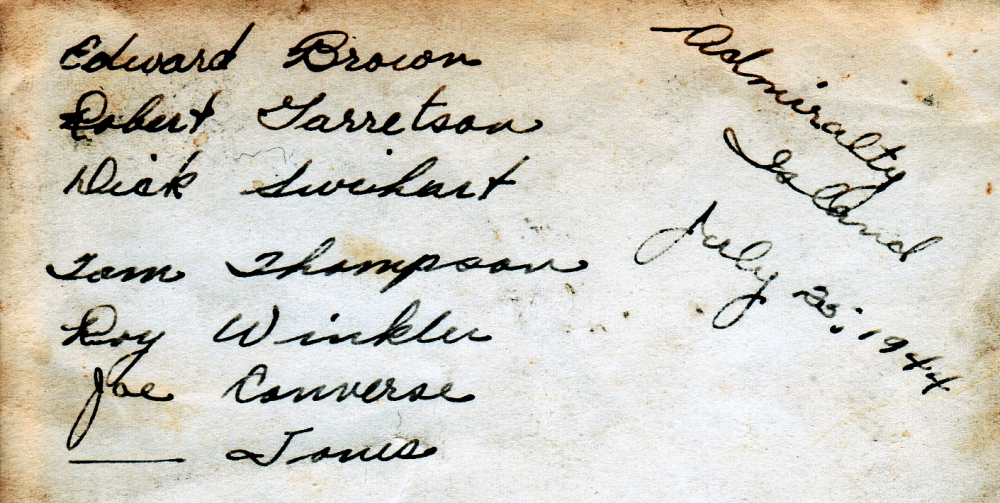 Edward Brown
Robert Garretson
Dick Swihart
Tom Thompson
Roy Winkler
Joe Converse
—— Jones
Admiralty
Island
July 20, 1944